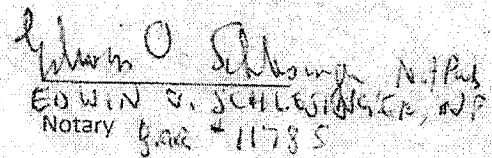 Edwin O. Schlesinger Not Pub
EDWIN O. SCHLESINGER, NP
Notary Bar # 11785